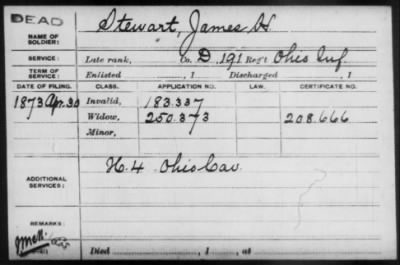 DEAD
NAME OF SOLDIER: Stewart, James H
SERVICE: Late rank, Co. D, 191 Reg't Ohio Inf.
TERM OF SERVICE: Enlisted , 1 Discharged , 1
DATE OF FILING. CLASS. APPLICATION NO. LAW. CERTIFICATE NO.
1873 Apr. 30 Invalid, 183.337
Widow, 250.373 208.666
Minor,
ADDITIONAL SERVICES: H. 4 Ohio Cav.
REMARKS:
Died , 1 , at